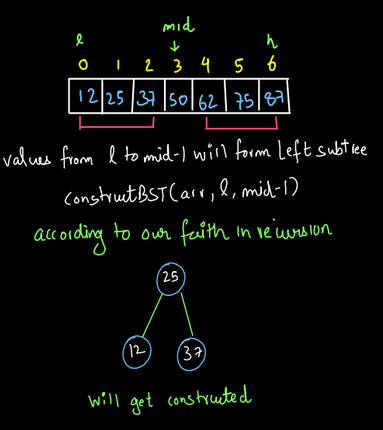 mid
l h
0 1 2 3 4 5 6
12 25 37 50 62 75 87
values from l to mid-1 will form left subtree
constructBST(arr, l, mid-1)
according to our faith in recursion
25
12 37
will get constructed